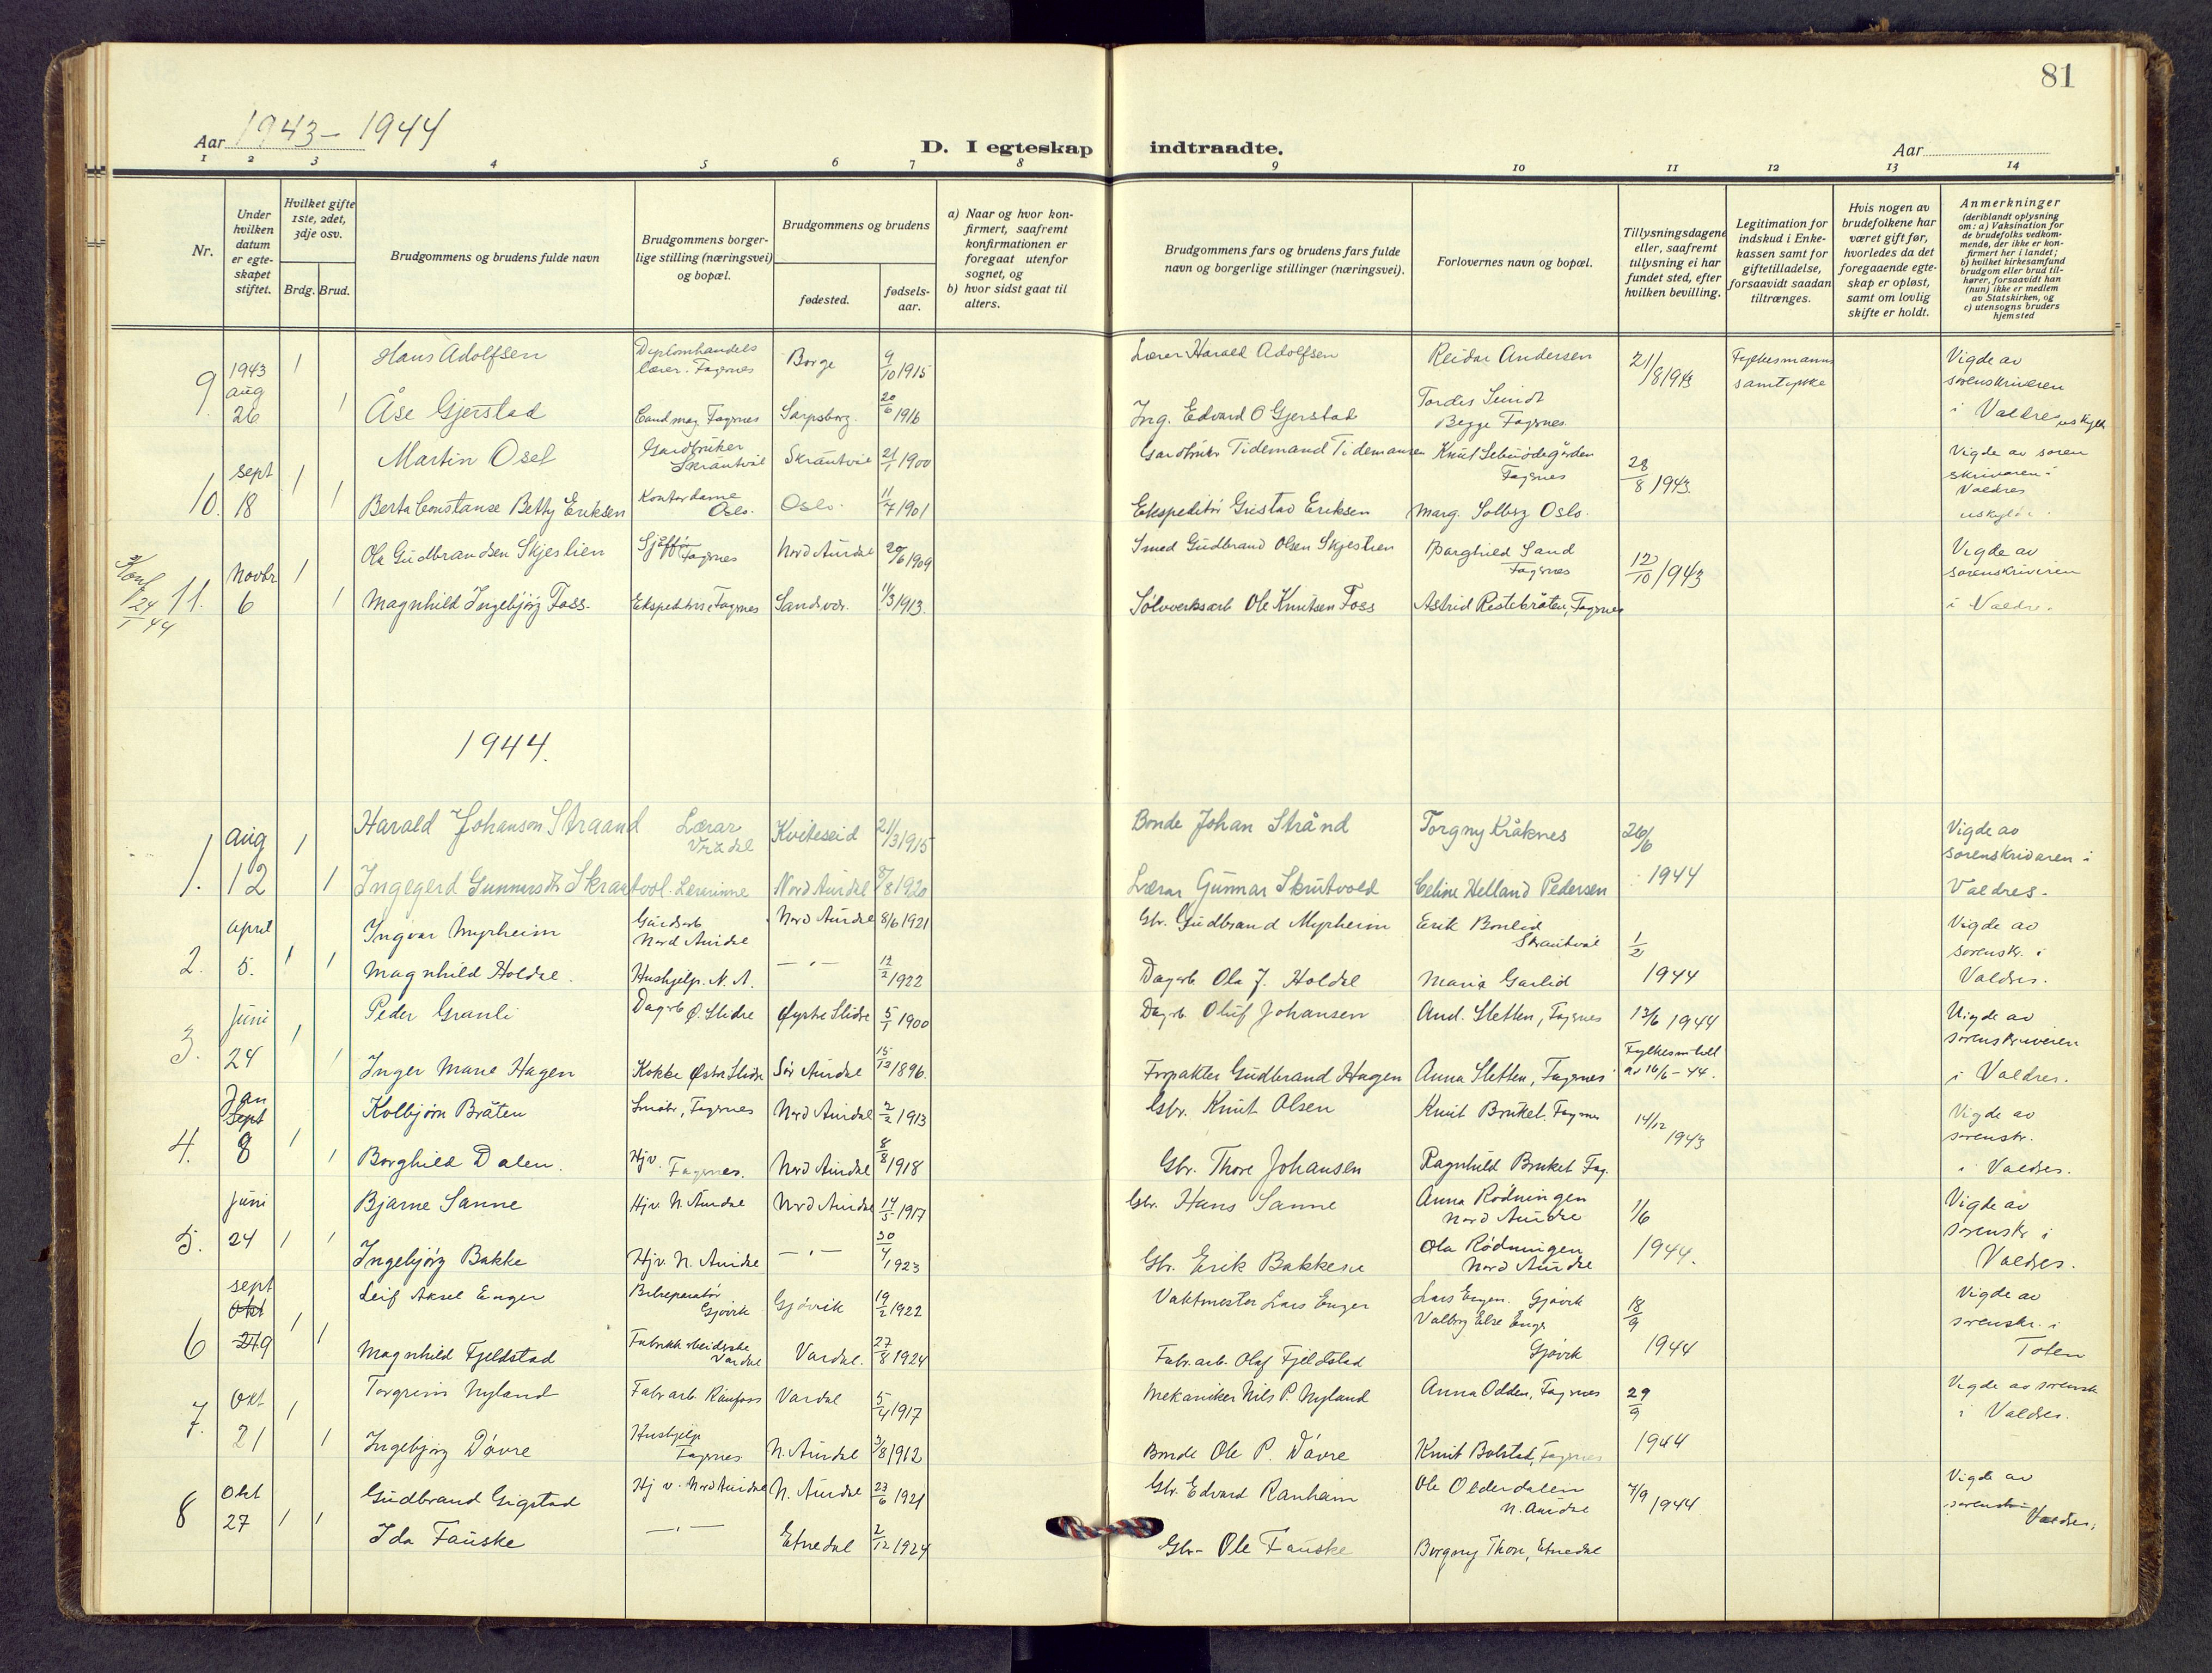 81
Aar 1943 - 1944
D. I egteskap indtraadte.
Aar
1 2 3 4 5 6 7 8 9 10 11 12 13 14
Nr.
Under hvilken datum er egte-skapet stiftet.
Hvilket gifte 1ste, 2det, 3dje osv.
Brdg. Brud.
Brudgommens og brudens fulde navn
Brudgommens borger-lige stilling (næringsvei) og bopæl.
Brudgommens og brudens
fødested.
fødsels-aar.
a) Naar og hvor kon-firmert, saafremt konfirmationen er foregaat utenfor sognet, og
b) hvor sidst gaat til alters.
Brudgommens fars og brudens fars fulde navn og borgerlige stillinger (næringsvei).
Forlovernes navn og bopæl.
Tillysningsdagene eller, saafremt tillysning ei har fundet sted, efter hvilken bevilling.
Legitimation for indskud i Enke-kassen samt for giftetilladelse, forsaavidt saadan tiltrænges.
Hvis nogen av brudefolkene har været gift før, hvorledes da det foregaaende egte-skap er opløst, samt om lovlig skifte er holdt.
Anmerkninger (deriblandt oplysning om: a) Vaksination for de brudefolks vedkom-mende, der ikke er kon-firmert her i landet; b) hvilket kirkesamfund brudgom eller brud til-hører, forsaavidt han (hun) ikke er medlem av Statskirken, og c) utensogns bruders hjemsted
9. 1943 aug 26
1 Hans Adolfsen Diplomhandels lærer. Fagernes Borge 9/10 1915 Lærer Harald Adolfsen Reidar Andersen 21/8 1943 Fylkesmanns samtykke Vigde av sorenskriveren
1 Åse Gjerstad Cand mag Fagernes Sarpsborg. 20/6 1916 Ing. Edvard O Gjerstad Tordis Sundt Begge Fagernes i Valdres
10. sept 18
1 Martin Osel Gardbruker Skrautvål Skrautvål 21/1 1900 Gardbruker Tidemand Tidemansen Knut Fagernes 28/8 1943. Vigde av soren skrivaren i Valdres
1 Berta Constanse Betty Eriksen Kontordame Oslo. Oslo. 11/7 1901 Ekspeditør Gustav Eriksen Marg. Solberg Oslo.
24/1 44
11. Novbr 6
1 Ola Gudbrandsen Skjeslien Sjåfør Fagernes Nord Aurdal 20/6 1909 Smed Gudbrand Olsen Skjeslien Borghild Sand Fagernes 12/10 1943 Vigde av sorenskriveren
1 Magnhild Ingebjørg Foss. Ekspeditrise Fagernes Sandsvær. 11/3 1913. Sølvverksarb Ole Knutsen Foss Astrid Restebråten, Fagernes i Valdres.
1944.
1. aug 12
1 Harald Johanson Straand Lærar Vrådal Kviteseid 21/3 1915 Bonde Johan Strånd Torgny Kråknes 26/6 Vigde av sorenskrivaren i
1 Ingegerd Gunnarsdtr Skrautvol. Lærarinne Nord Aurdal 8/8 1920 Lærar Gunnar Skrutvold Celine Helland Pedersen 1944 Valdres.
2. april 5.
1 Ingvar Myrheim Gardsarb Nord Aurdal Nord Aurdal 8/6 1921 Gbr. Gudbrand Myrheim Erik Bonlid Skrautvål 1/2 Vigde av sorenskr. i
1 Magnhild Holdal. Hushjelp. N. A. — " — 12/2 1922 Dagarb Ola J. Holdal Maria Garlid 1944 Valdres.
3. Juni 24
1 Peder Granli Dagarb Ø. Slidre Øystre Slidre 5/1 1900 Dagarb. Oluf Johansen And. Sletten, Fagernes 13/6 1944 Vigde av sorenskriveren
1 Inger Marie Hagen Kokke Østre Slidre Sør Aurdal 15/12 1896. Forpakter Gudbrand Hagen Anna Sletten, Fagernes Fylkesm till av 16/6-44. i Valdres.
4. Jan Sept 8
1 Kolbjørn Bråten Småbr., Fagernes Nord Aurdal 2/2 1913 Gbr. Knut Olsen Knut Bruket. Fagernes 14/12 1943 Vigde av sorenskr.
1 Borghild Dalen. Hjv. Fagernes. Nord Aurdal 8/8 1918 Gbr. Thore Johansen Ragnhild Bruket Fag. i Valdres.
5. Juni 24
1 Bjarne Sanne Hjv. N. Aurdal Nord Aurdal 14/5 1917 Gbr. Hans Sanne Anna Rødningen Nord Aurdal 1/6 Vigde av sorenskr i
1 Ingebjørg Bakke Hjv. N. Aurdal — " — 30/4 1923 Gbr. Erik Bakkene Ola Rødningen Nord Aurdal 1944. Valdres.
6 sept Okt 9
1 Leif Aksel Enger Bilreparatør Gjøvik Gjøvik 19/2 1922 Vaktmester Lars Enger Lars Enger. Gjøvik 18/9 Vigde av sorenskr. i
1 Magnhild Fjeldstad Fabrikkarbeiderske Vardal Vardal. 27/8 1924 Fabr.arb. Olaf Fjeldstad Valborg Else Enger Gjøvik 1944 Toten
7. Okt 21
1 Torgrim Nyland Fabr arb. Raufoss Vardal 5/4 1917 Mekaniker Nils P. Nyland Anna Odden, Fagernes 29/9 Vigde av sorensk i Valdres.
1 Ingebjørg Døvre Hushjelp Fagernes N. Aurdal 3/8 1912 Bonde Ole P. Døvre Knut Bolstad, Fagernes 1944
8 Okt 27
1 Gudbrand Gigstad Hj v. Nord Aurdal N. Aurdal 23/6 1921 Gbr. Edvard Ranheim Ole Olderdalen N. Aurdal 7/9 1944 Vigde av sorenskr i Valdres.
1 Ida Fauske — " — Etnedal 2/12 1924 Gbr. Ole Fauske Borgny Thon, Etnedal